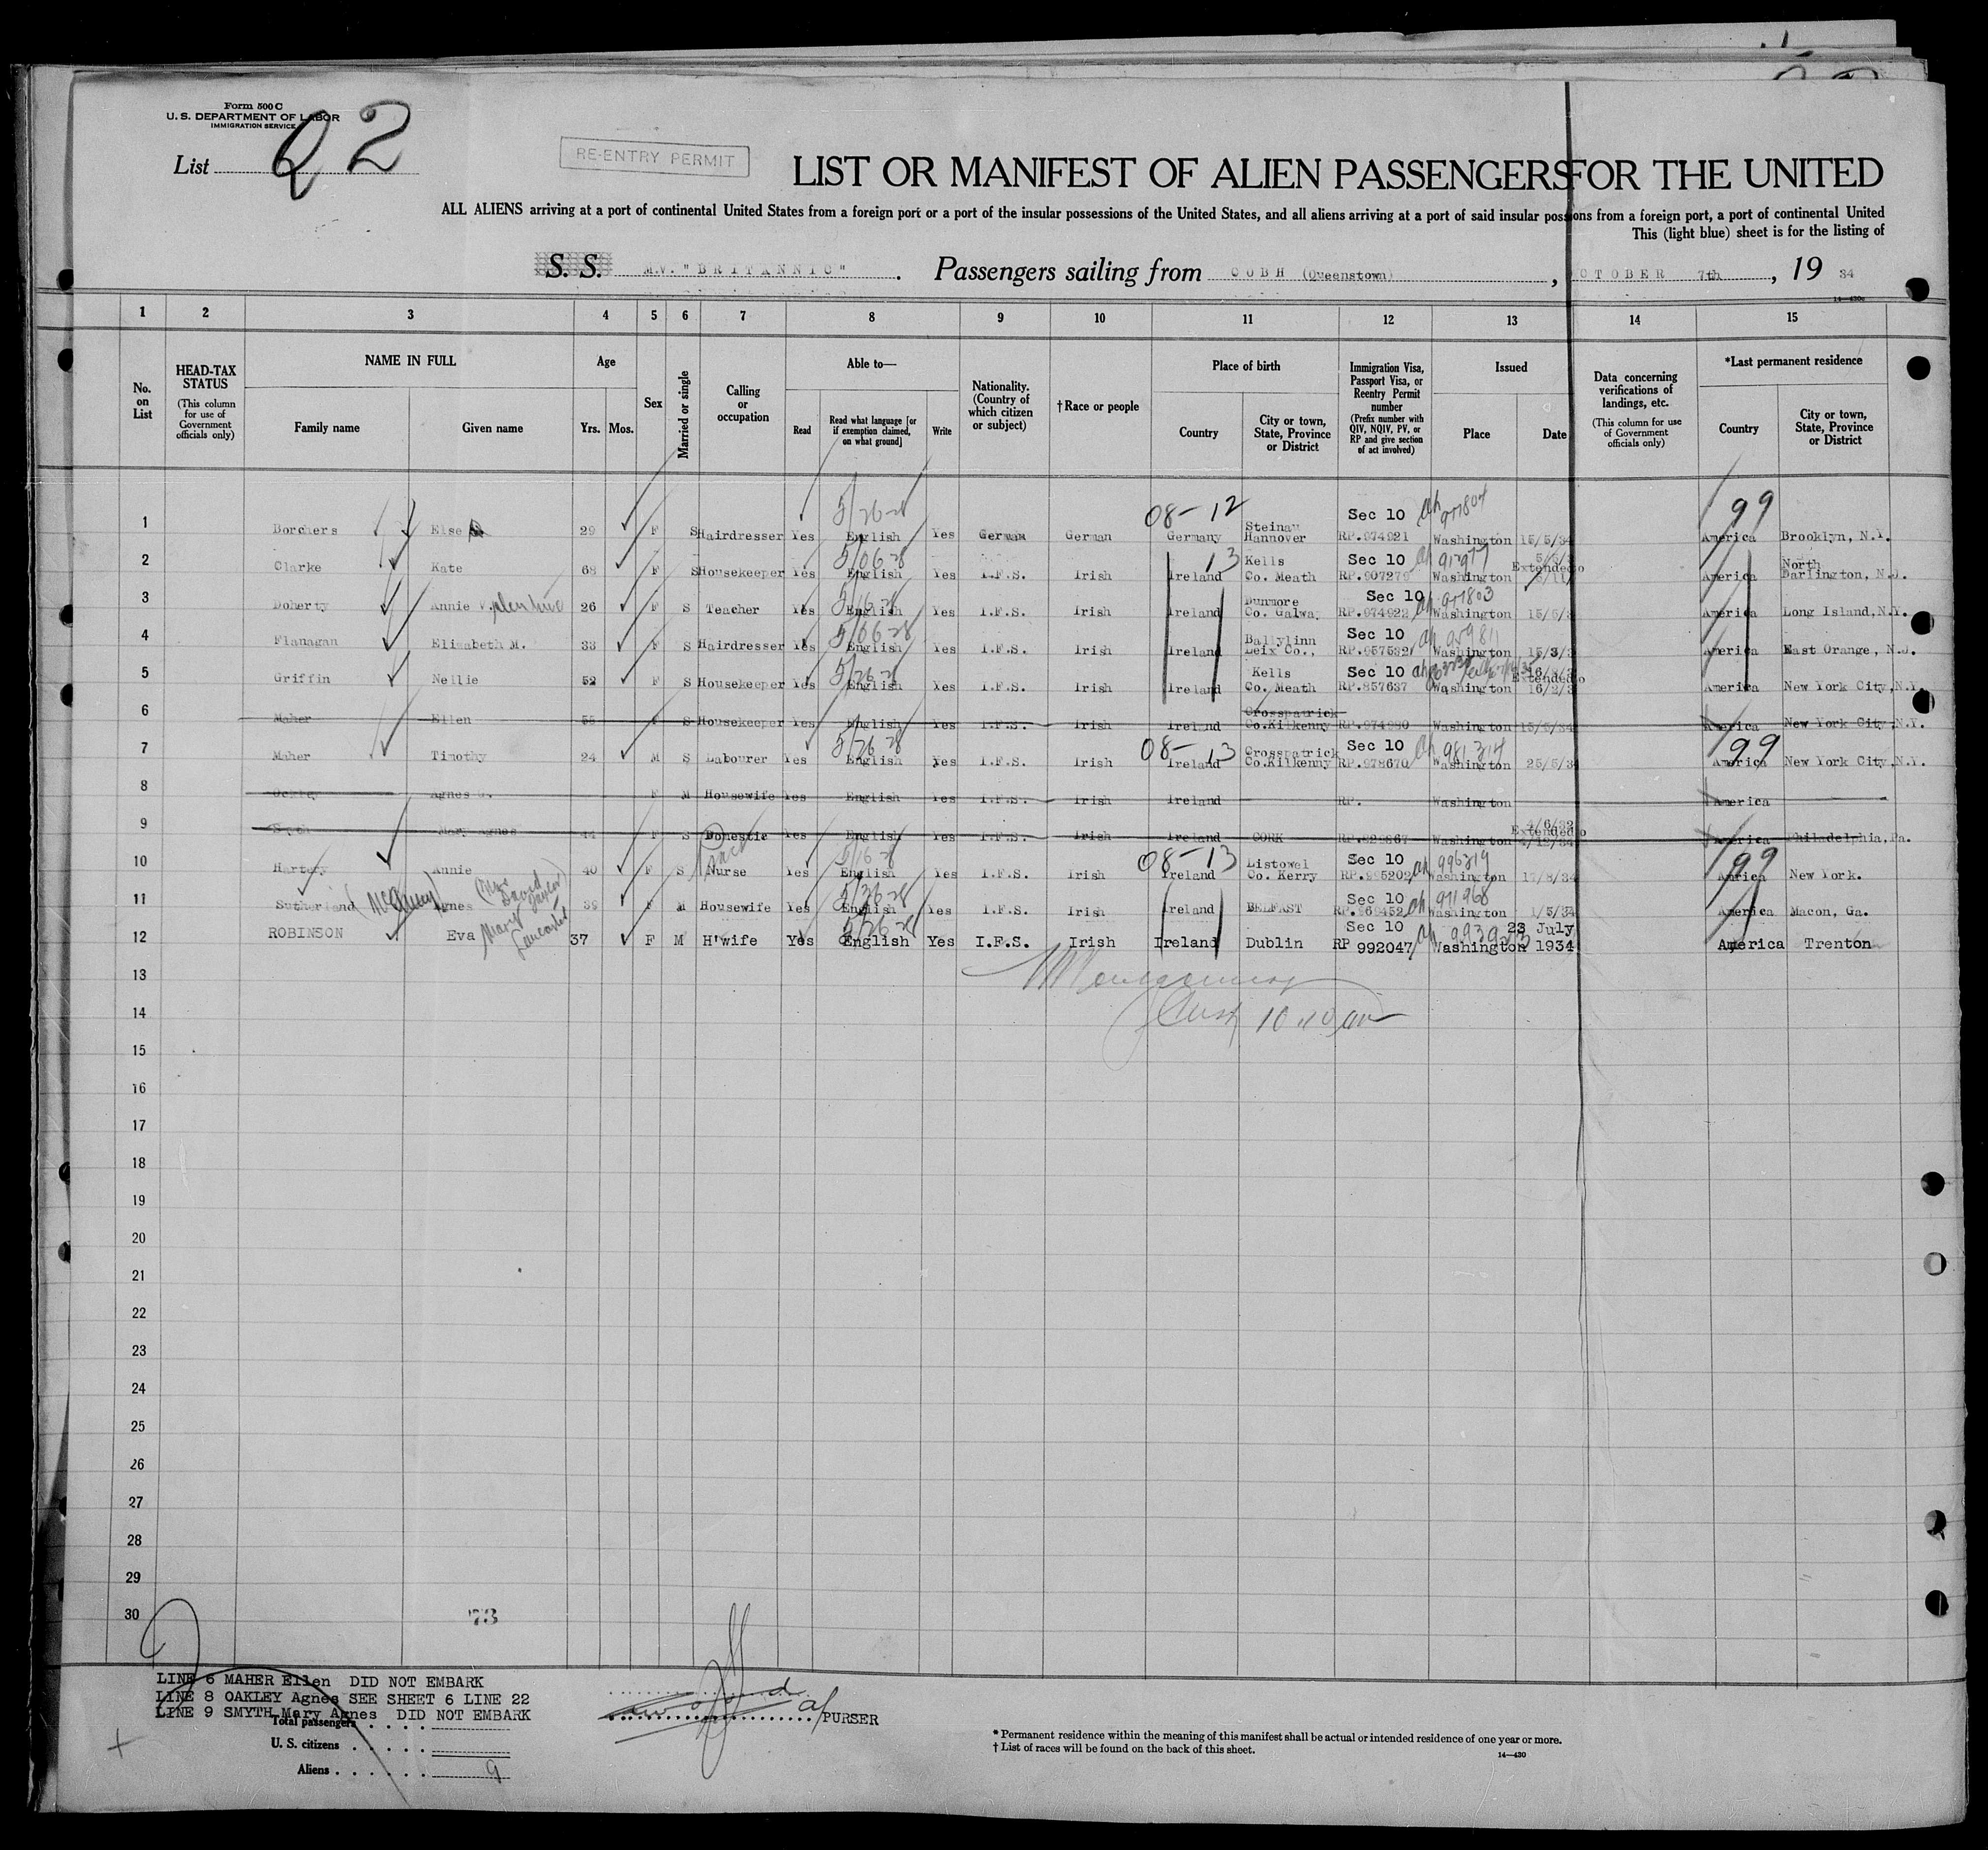 Form 500 C
U. S. DEPARTMENT OF LABOR
IMMIGRATION SERVICE
List 22
RE-ENTRY PERMIT
LIST OR MANIFEST OF ALIEN PASSENGERS FOR THE UNITED
ALL ALIENS arriving at a port of continental United States from a foreign port or a port of the insular possessions of the United States, and all aliens arriving at a port of said insular possions from a foreign port, a port of continental United
This (light blue) sheet is for the listing of
S. S. M.V. "BRITANNIC" . Passengers sailing from COBH (Queenstown) , OCTOBER 7th , 19 34
1 2 3 4 5 6 7 8 9 10 11 12 13 14 15
No. on List
HEAD-TAX STATUS (This column for use of Government officials only)
NAME IN FULL Family name Given name
Age Yrs. Mos.
Sex
Married or single
Calling or occupation
Able to— Read Read what language [or if exemption claimed, on what ground] Write
Nationality. (Country of which citizen or subject)
† Race or people
Place of birth Country City or town, State, Province or District
Immigration Visa, Passport Visa, or Reentry Permit number (Prefix number with QIV, NQIV, PV, or RP and give section of act involved)
Issued Place Date
Data concerning verifications of landings, etc. (This column for use of Government officials only)
*Last permanent residence Country City or town, State, Province or District
1 Borchers Else 29 F S Hairdresser Yes English Yes German German 08-12 Germany Steinau Hannover Sec 10 RP.974921 977804 Washington 15/5/34 99 America Brooklyn, N.Y.
2 Clarke Kate 68 F S Housekeeper Yes English Yes I.F.S. Irish 13 Ireland Kells Co. Meath Sec 10 RP.907279 Washington Extended to America North Darlington, N.J.
3 Doherty Annie V. 26 F S Teacher Yes English Yes I.F.S. Irish Ireland Dunmore Co. Galway Sec 10 RP.974922 977803 Washington America Long Island, N.Y.
4 Flanagan Elizabeth M. 33 F S Hairdresser Yes English Yes I.F.S. Irish Ireland Ballylinn Leix Co., Sec 10 RP.957532 Washington 15/3/3 America East Orange, N.J.
5 Griffin Nellie 52 F S Housekeeper Yes English Yes I.F.S. Irish Ireland Kells Co. Meath Sec 10 RP.857637 Washington Extended to 16/2/3 America New York City, N.Y.
6 Maher Ellen F S Housekeeper Yes English Yes I.F.S. Irish Ireland Crosspatrick Co.Kilkenny Washington 15/5/34 America New York City, N.Y.
7 Maher Timothy 24 M S Labourer Yes English Yes I.F.S. Irish 08-13 Ireland Crosspatrick Co.Kilkenny Sec 10 RP.978670 981314 Washington 25/5/3 99 America New York City, N.Y.
8 Agnes F M Housewife Yes English Yes I.F.S. Irish Ireland RP. Washington America
9 Mary Agnes 44 F S Domestic Yes English Yes I.F.S. Irish Ireland CORK Washington 4/6/32 Extended to America Philadelphia, Pa.
10 Hartery Annie 40 F S Nurse Yes English Yes I.F.S. Irish 08-13 Ireland Listowel Co. Kerry Sec 10 RP.995202 996219 Washington 99 America New York.
11 Sutherland Agnes F M Housewife Yes English Yes I.F.S. Irish Ireland BELFAST Sec 10 RP.969452 971968 Washington 1/5/34 America Macon, Ga.
12 ROBINSON Eva Mary Lancaster 37 F M H'wife Yes English Yes I.F.S. Irish Ireland Dublin Sec 10 RP 992047 Washington 23 July 1934 America Trenton
13
14
15
16
17
18
19
20
21
22
23
24
25
26
27
28
29
30
73
LINE 6 MAHER Ellen DID NOT EMBARK
LINE 8 OAKLEY Agnes SEE SHEET 6 LINE 22
LINE 9 SMYTH Mary Agnes DID NOT EMBARK
Total passengers
U. S. citizens
Aliens 9
PURSER
* Permanent residence within the meaning of this manifest shall be actual or intended residence of one year or more.
† List of races will be found on the back of this sheet.
14—430